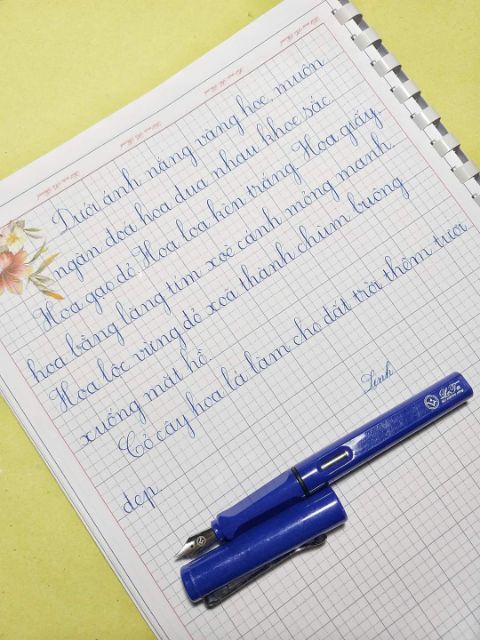 Dưới ánh nắng vàng hoe, muôn
ngàn đoá hoa đua nhau khoe sắc.
Hoa gạo đỏ. Hoa loa kèn trắng. Hoa giấy,
hoa bằng lăng tím xoè cánh mỏng manh.
Hoa lộc vừng đỏ xoã thành chùm buông
xuống mặt hồ.
Cỏ cây hoa lá làm cho đất trời thêm tươi
đẹp.
Linh